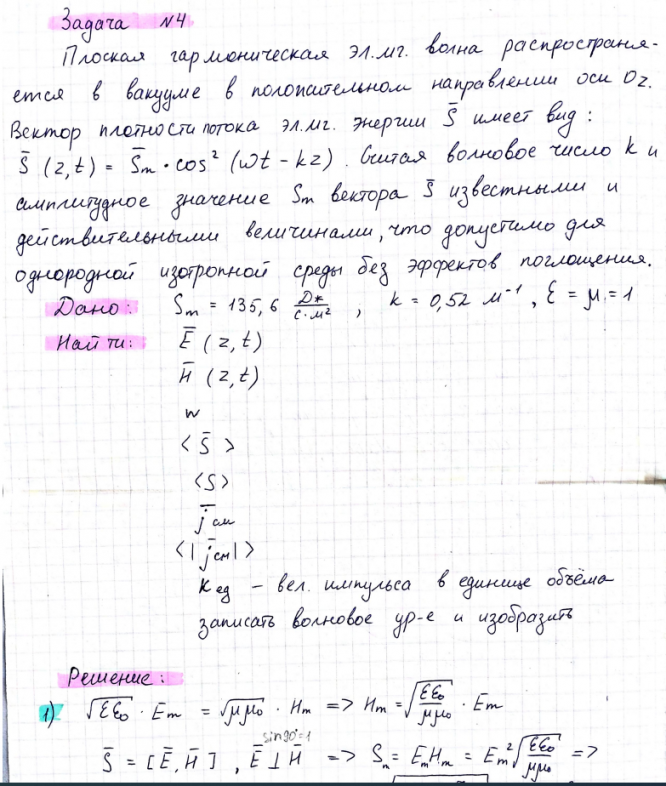 Задача №4
Плоская гармоническая эл.мг. волна распространя-
ется в вакууме в положительном направлении оси Oz.
Вектор плотности потока эл.мг. энергии S̄ имеет вид:
S̄ (z,t) = S̄m · cos² (ωt - kz). Считая волновое число k и
амплитудное значение Sm вектора S̄ известными и
действительными величинами, что допустимо для
однородной изотропной среды без эффектов поглощения.
Дано: Sm = 135,6 Дж/с·м² , k = 0,52 м⁻¹ , ε = μ = 1
Найти: Ē (z,t)
H̄ (z,t)
w
<S̄>
<S>
j̄см
<|j̄см|>
Kед – вел. импульса в единице объёма
записать волновое ур-е и изобразить
Решение:
1) √εε₀ · Em = √μμ₀ · Hm => Hm = √(εε₀/μμ₀) · Em
sin90°=1
S̄ = [Ē, H̄] , Ē ⊥ H̄ => Sm = EmHm = Em² √(εε₀/μμ₀) =>